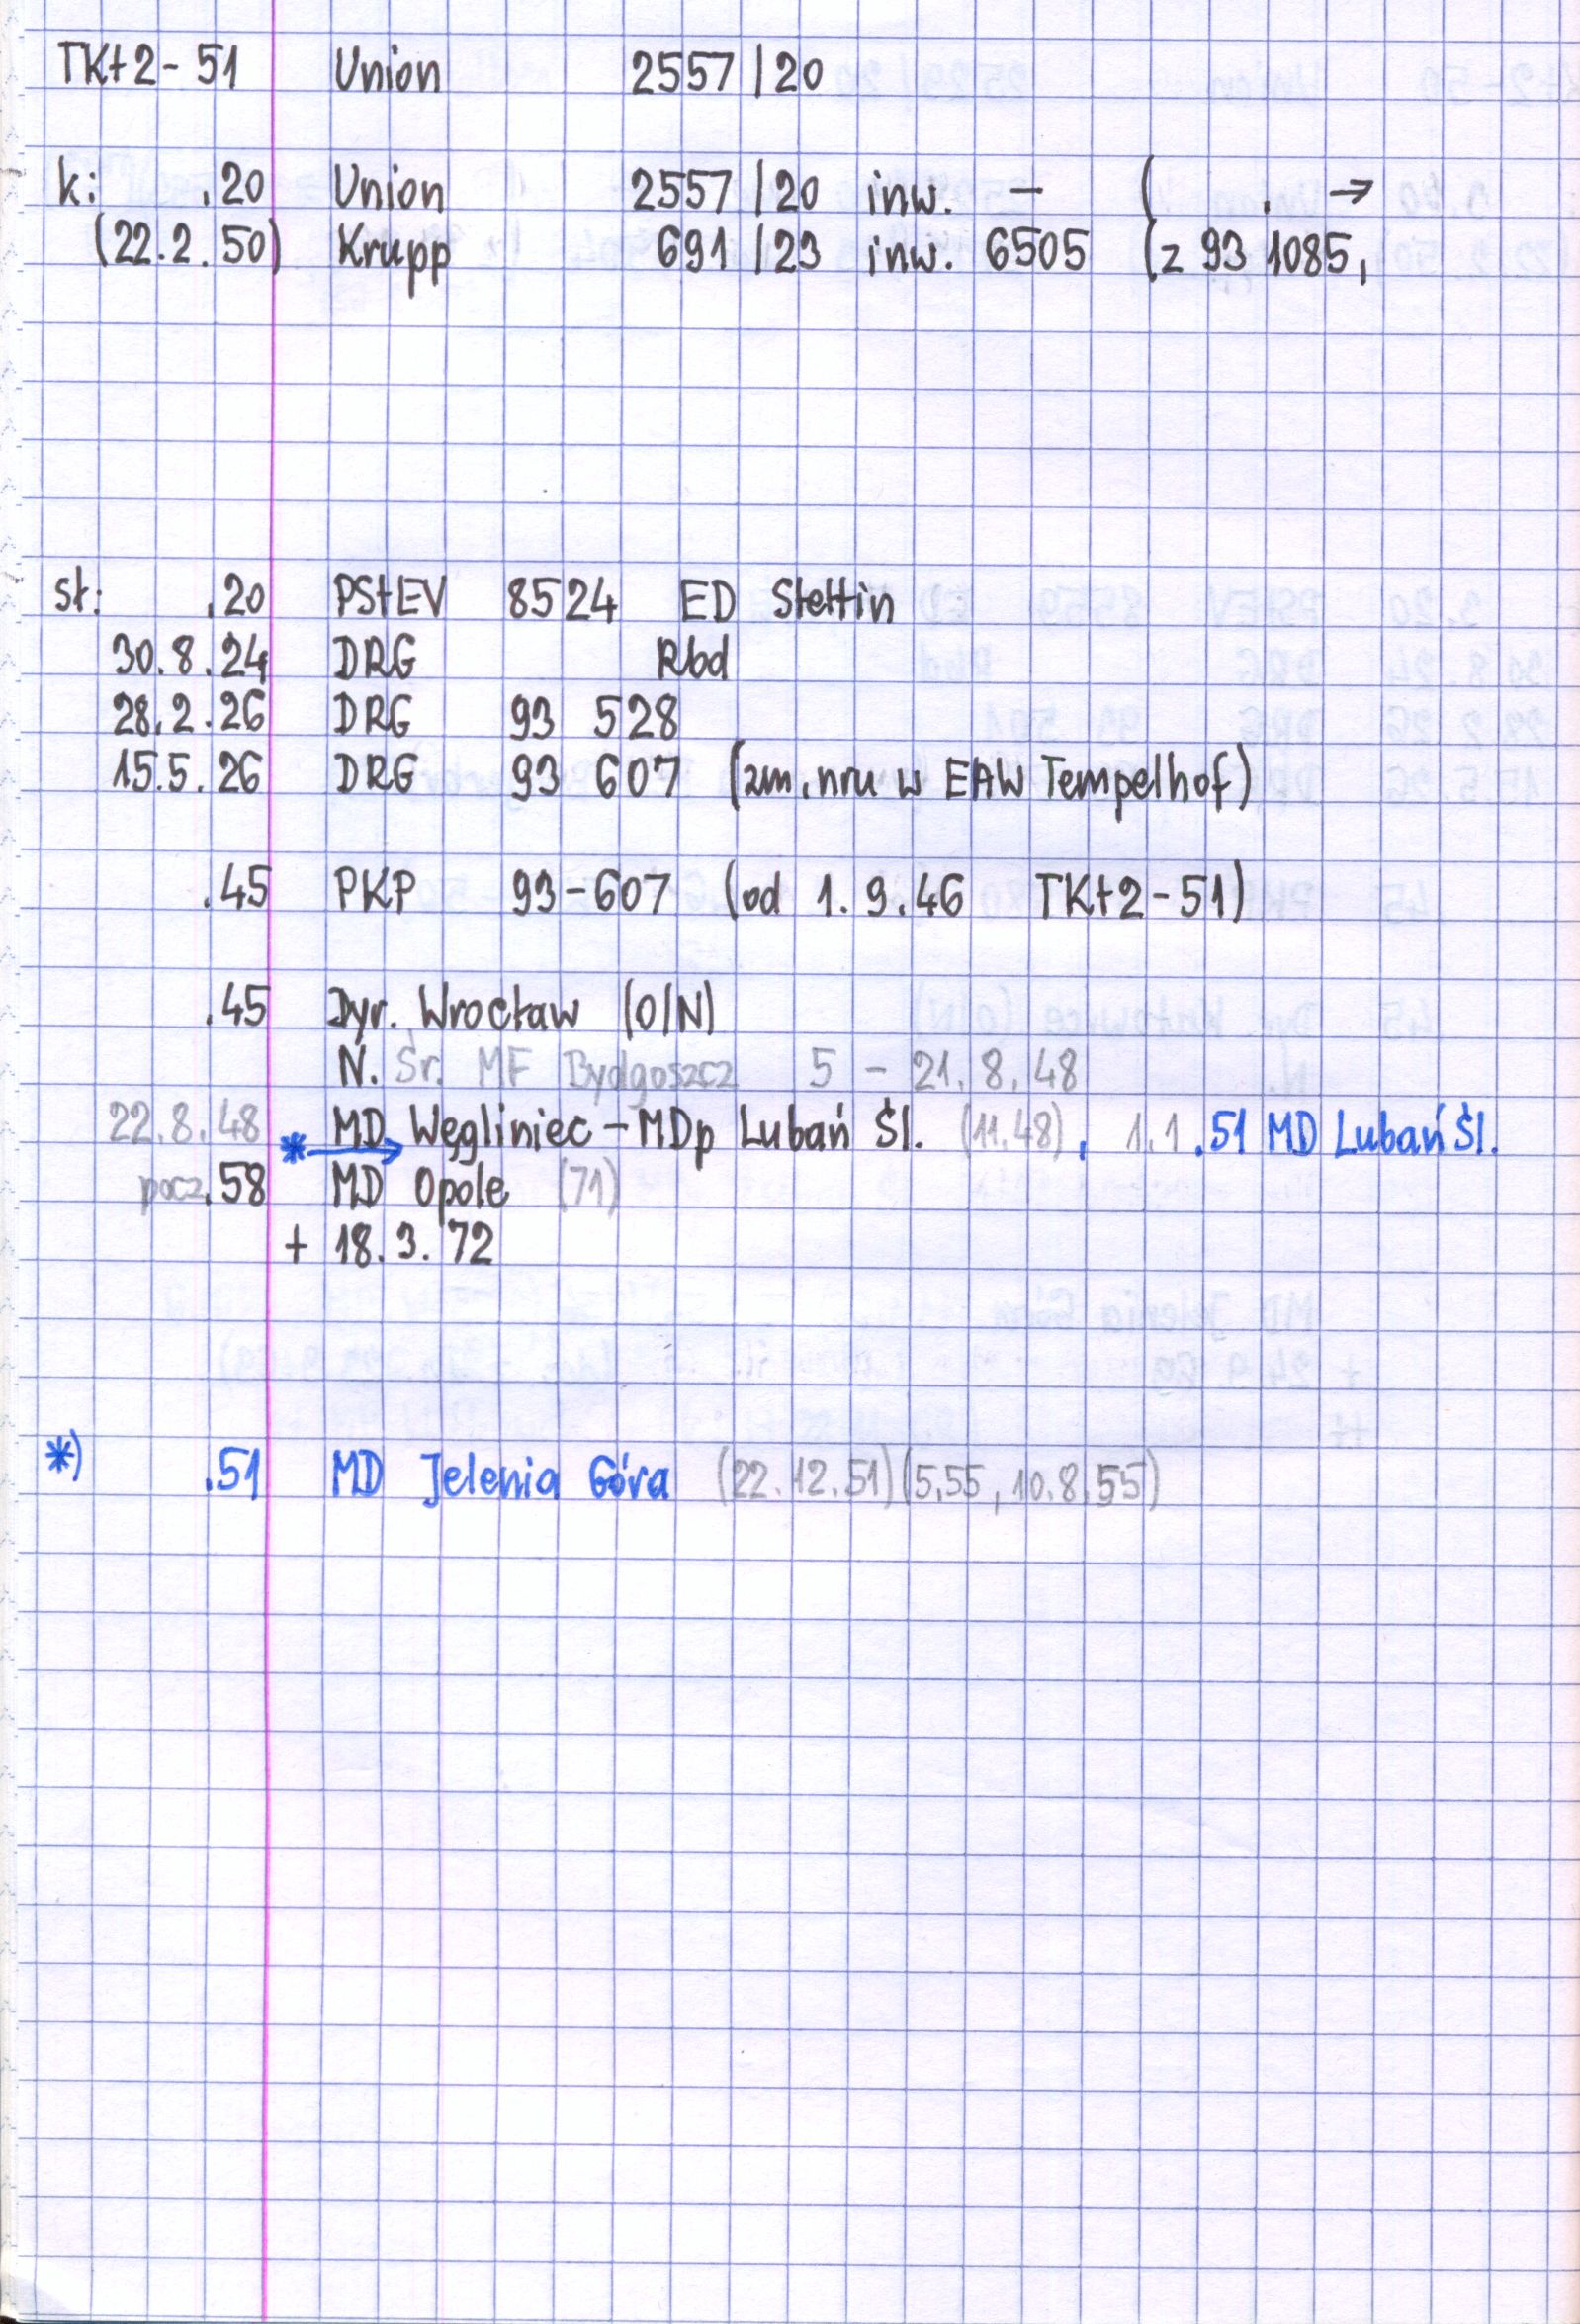 TKt2-51 Union 2557/20
k: .20 Union 2557/20 inw. – ( . →
(22.2.50) Krupp 691/23 inw. 6505 (z 93 1085,
st: .20 PStEV 8524 ED Stettin
30.8.24 DRG Rbd
28.2.26 DRG 93 528
15.5.26 DRG 93 607 (zm. nru w EAW Tempelhof)
.45 PKP 93-607 (od 1.9.46 TKt2-51)
.45 Dyr. Wrocław (O/N)
N. Śr. MF Bydgoszcz 5 – 21.8.48
22.8.48 * MD Węgliniec – MDp Lubań Śl. (11.48), 1.1.51 MD Lubań Śl.
pocz.58 MD Opole (71)
+ 18.3.72
*) .51 MD Jelenia Góra (22.12.51) (5.55, 10.8.55)